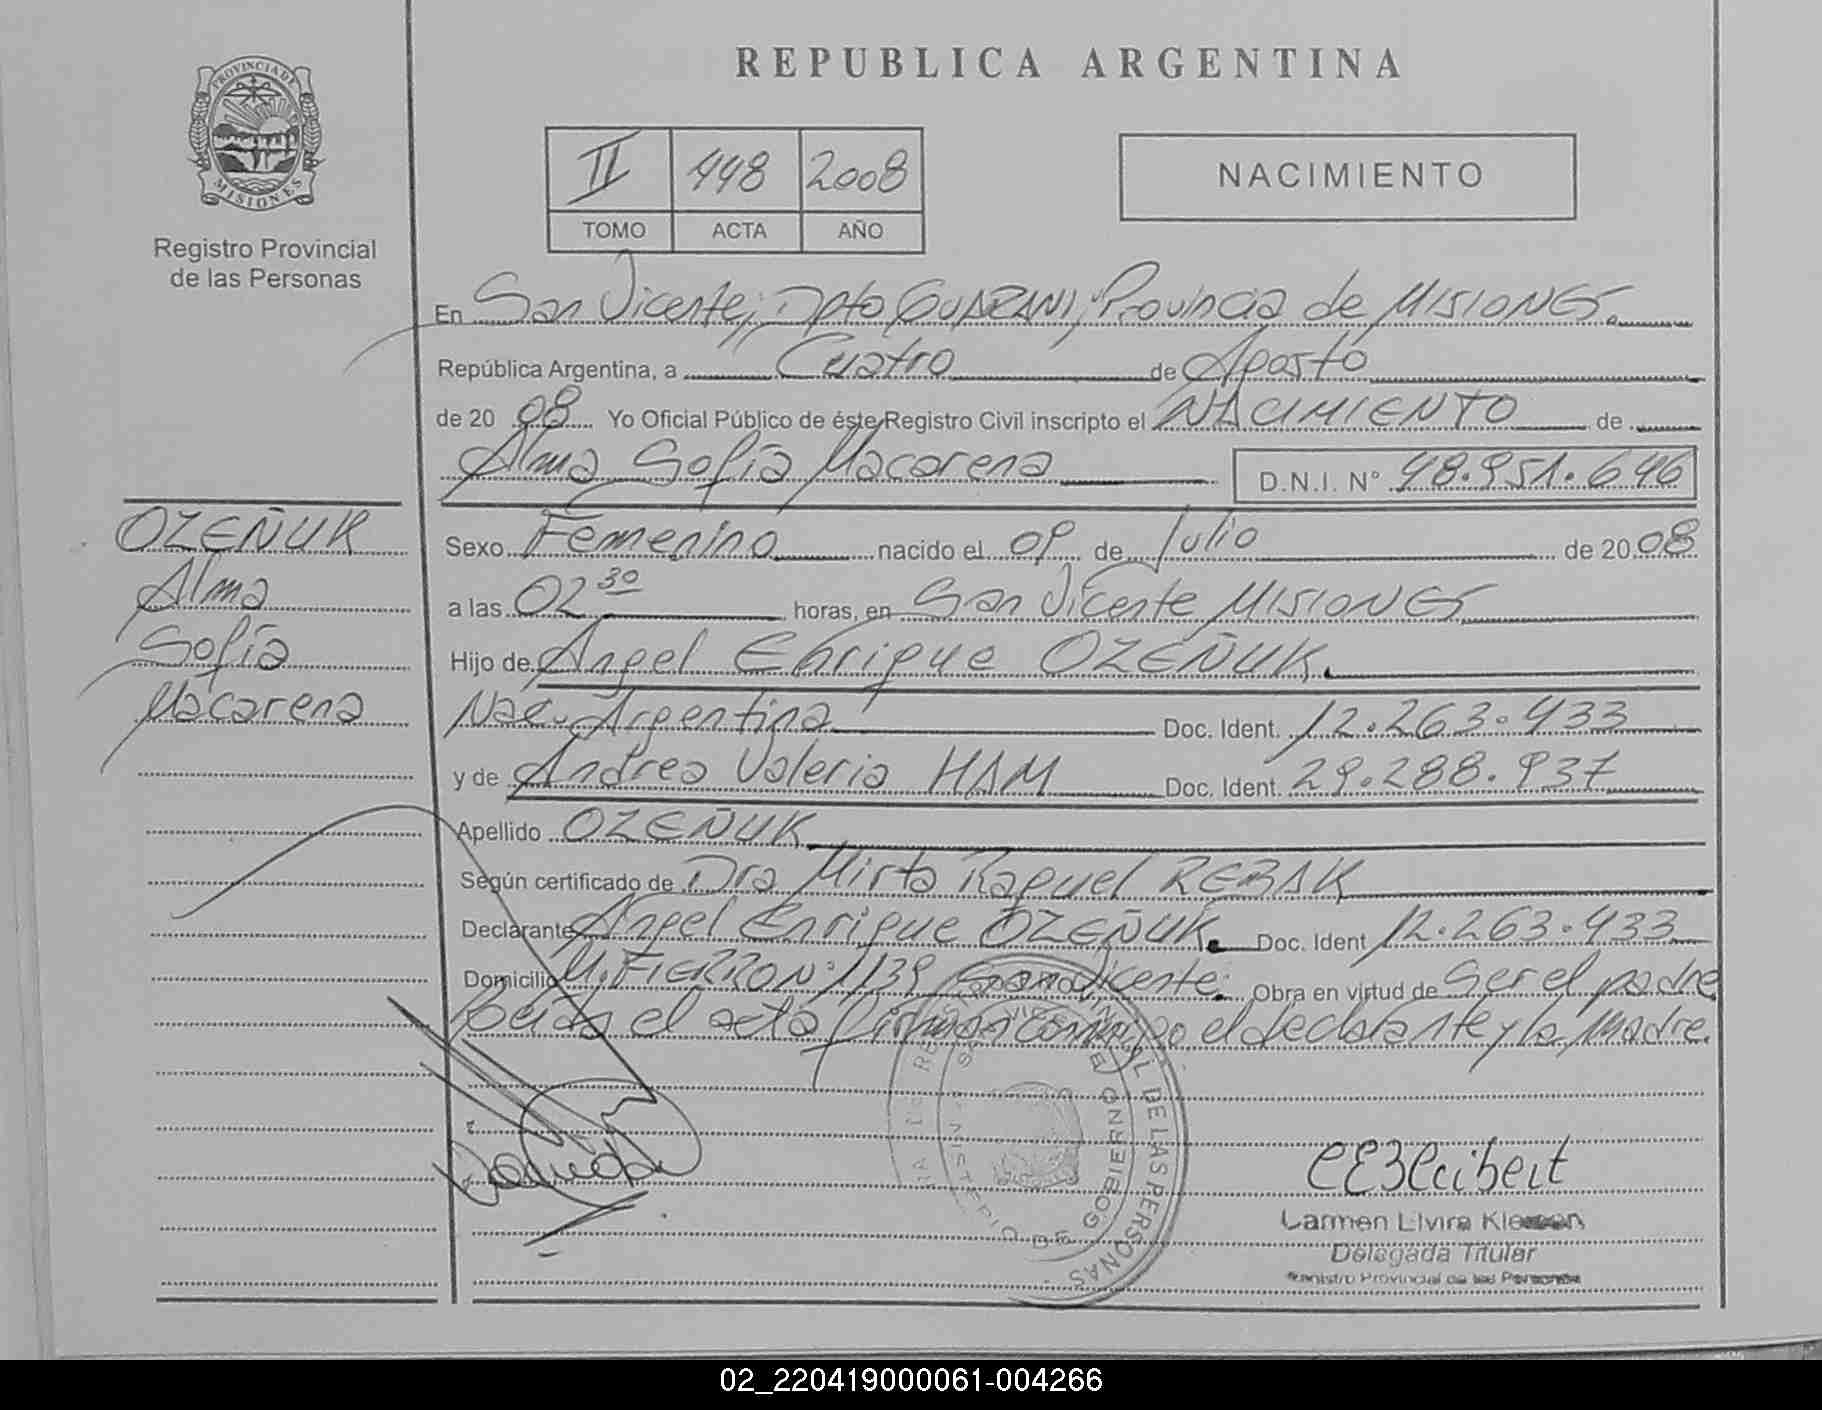 REPUBLICA ARGENTINA
PROVINCIA DE
MISIONES
Registro Provincial
de las Personas
II 448 2008
TOMO ACTA AÑO
NACIMIENTO
En San Vicente, Dpto GUARANI, Provincia de MISIONES.
República Argentina, a Cuatro de Agosto
de 20 08 Yo Oficial Público de éste Registro Civil inscripto el NACIMIENTO de
Alma Sofía Macarena D.N.I. Nº 48.951.646
OZEÑUK
Alma
Sofía
Macarena
Sexo Femenino nacido el 09 de Julio de 20 08
a las 02 30 horas, en San Vicente MISIONES
Hijo de Angel Enrique OZEÑUK.
Nac. Argentina Doc. Ident. 12.263.433
y de Andrea Valeria HAM Doc. Ident. 29.288.937
Apellido OZEÑUK
Según certificado de Dra Mirta Raquel REBAK
Declarante Angel Enrique OZEÑUK. Doc. Ident 12.263.433
Domicilio M. FIERRO Nº 1139 San Vicente. Obra en virtud de Ser el padre
Leída el acta firman conmigo el declarante y la Madre.
DE LAS PERSONAS
MINISTERIO DE GOBIERNO
Carmen Elvira
Delegada Titular
Registro Provincial de las Personas
02_220419000061-004266